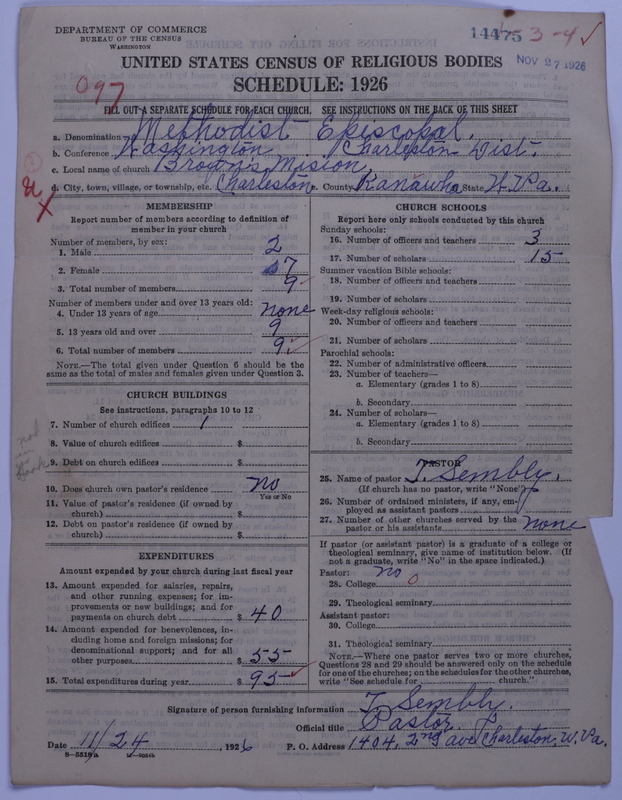 DEPARTMENT OF COMMERCE
BUREAU OF THE CENSUS
WASHINGTON
14475 3-4 ✓
NOV 27 1926
UNITED STATES CENSUS OF RELIGIOUS BODIES
SCHEDULE: 1926
097
FILL OUT A SEPARATE SCHEDULE FOR EACH CHURCH. SEE INSTRUCTIONS ON THE BACK OF THIS SHEET
a. Denomination Methodist Episcopal.
b. Conference Washington Charleston Dist.
c. Local name of church Brown's Mision
d. City, town, village, or township, etc. Charleston e. County Kanawha State W.Va.
MEMBERSHIP
Report number of members according to definition of
member in your church
Number of members, by sex:
1. Male 2
2. Female 7
3. Total number of members 9
Number of members under and over 13 years old:
4. Under 13 years of age none
5. 13 years old and over 9
6. Total number of members 9 ✓
NOTE.—The total given under Question 6 should be the
same as the total of males and females given under Question 3.
CHURCH BUILDINGS
See instructions, paragraphs 10 to 12
7. Number of church edifices 1
8. Value of church edifices $
9. Debt on church edifices $
10. Does church own pastor's residence No
Yes or No
11. Value of pastor's residence (if owned by
church) $
12. Debt on pastor's residence (if owned by
church) $
EXPENDITURES
Amount expended by your church during last fiscal year
13. Amount expended for salaries, repairs,
and other running expenses; for im-
provements or new buildings; and for
payments on church debt $ 40
14. Amount expended for benevolences, in-
cluding home and foreign missions; for
denominational support; and for all
other purposes $ 55
15. Total expenditures during year $ 95 ✓
CHURCH SCHOOLS
Report here only schools conducted by this church
Sunday schools:
16. Number of officers and teachers 3
17. Number of scholars 15
Summer vacation Bible schools:
18. Number of officers and teachers
19. Number of scholars
Week-day religious schools:
20. Number of officers and teachers
21. Number of scholars
Parochial schools:
22. Number of administrative officers
23. Number of teachers—
a. Elementary (grades 1 to 8)
b. Secondary
24. Number of scholars—
a. Elementary (grades 1 to 8)
b. Secondary
PASTOR
25. Name of pastor T. Sembly.
(If church has no pastor, write "None")
26. Number of ordained ministers, if any, em-
ployed as assistant pastors
27. Number of other churches served by the
pastor or his assistants none
If pastor (or assistant pastor) is a graduate of a college or
theological seminary, give name of institution below. (If
not a graduate, write "No" in the space indicated.)
Pastor: No
28. College 0
29. Theological seminary
Assistant pastor:
30. College
31. Theological seminary
NOTE.—Where one pastor serves two or more churches,
Questions 28 and 29 should be answered only on the schedule
for one of the churches; on the schedules for the other churches,
write "See schedule for church."
Signature of person furnishing information T. Sembly.
Official title Pastor.
Date 11/24, 1926 P. O. Address 1404, 2nd ave Charleston, W. Va.